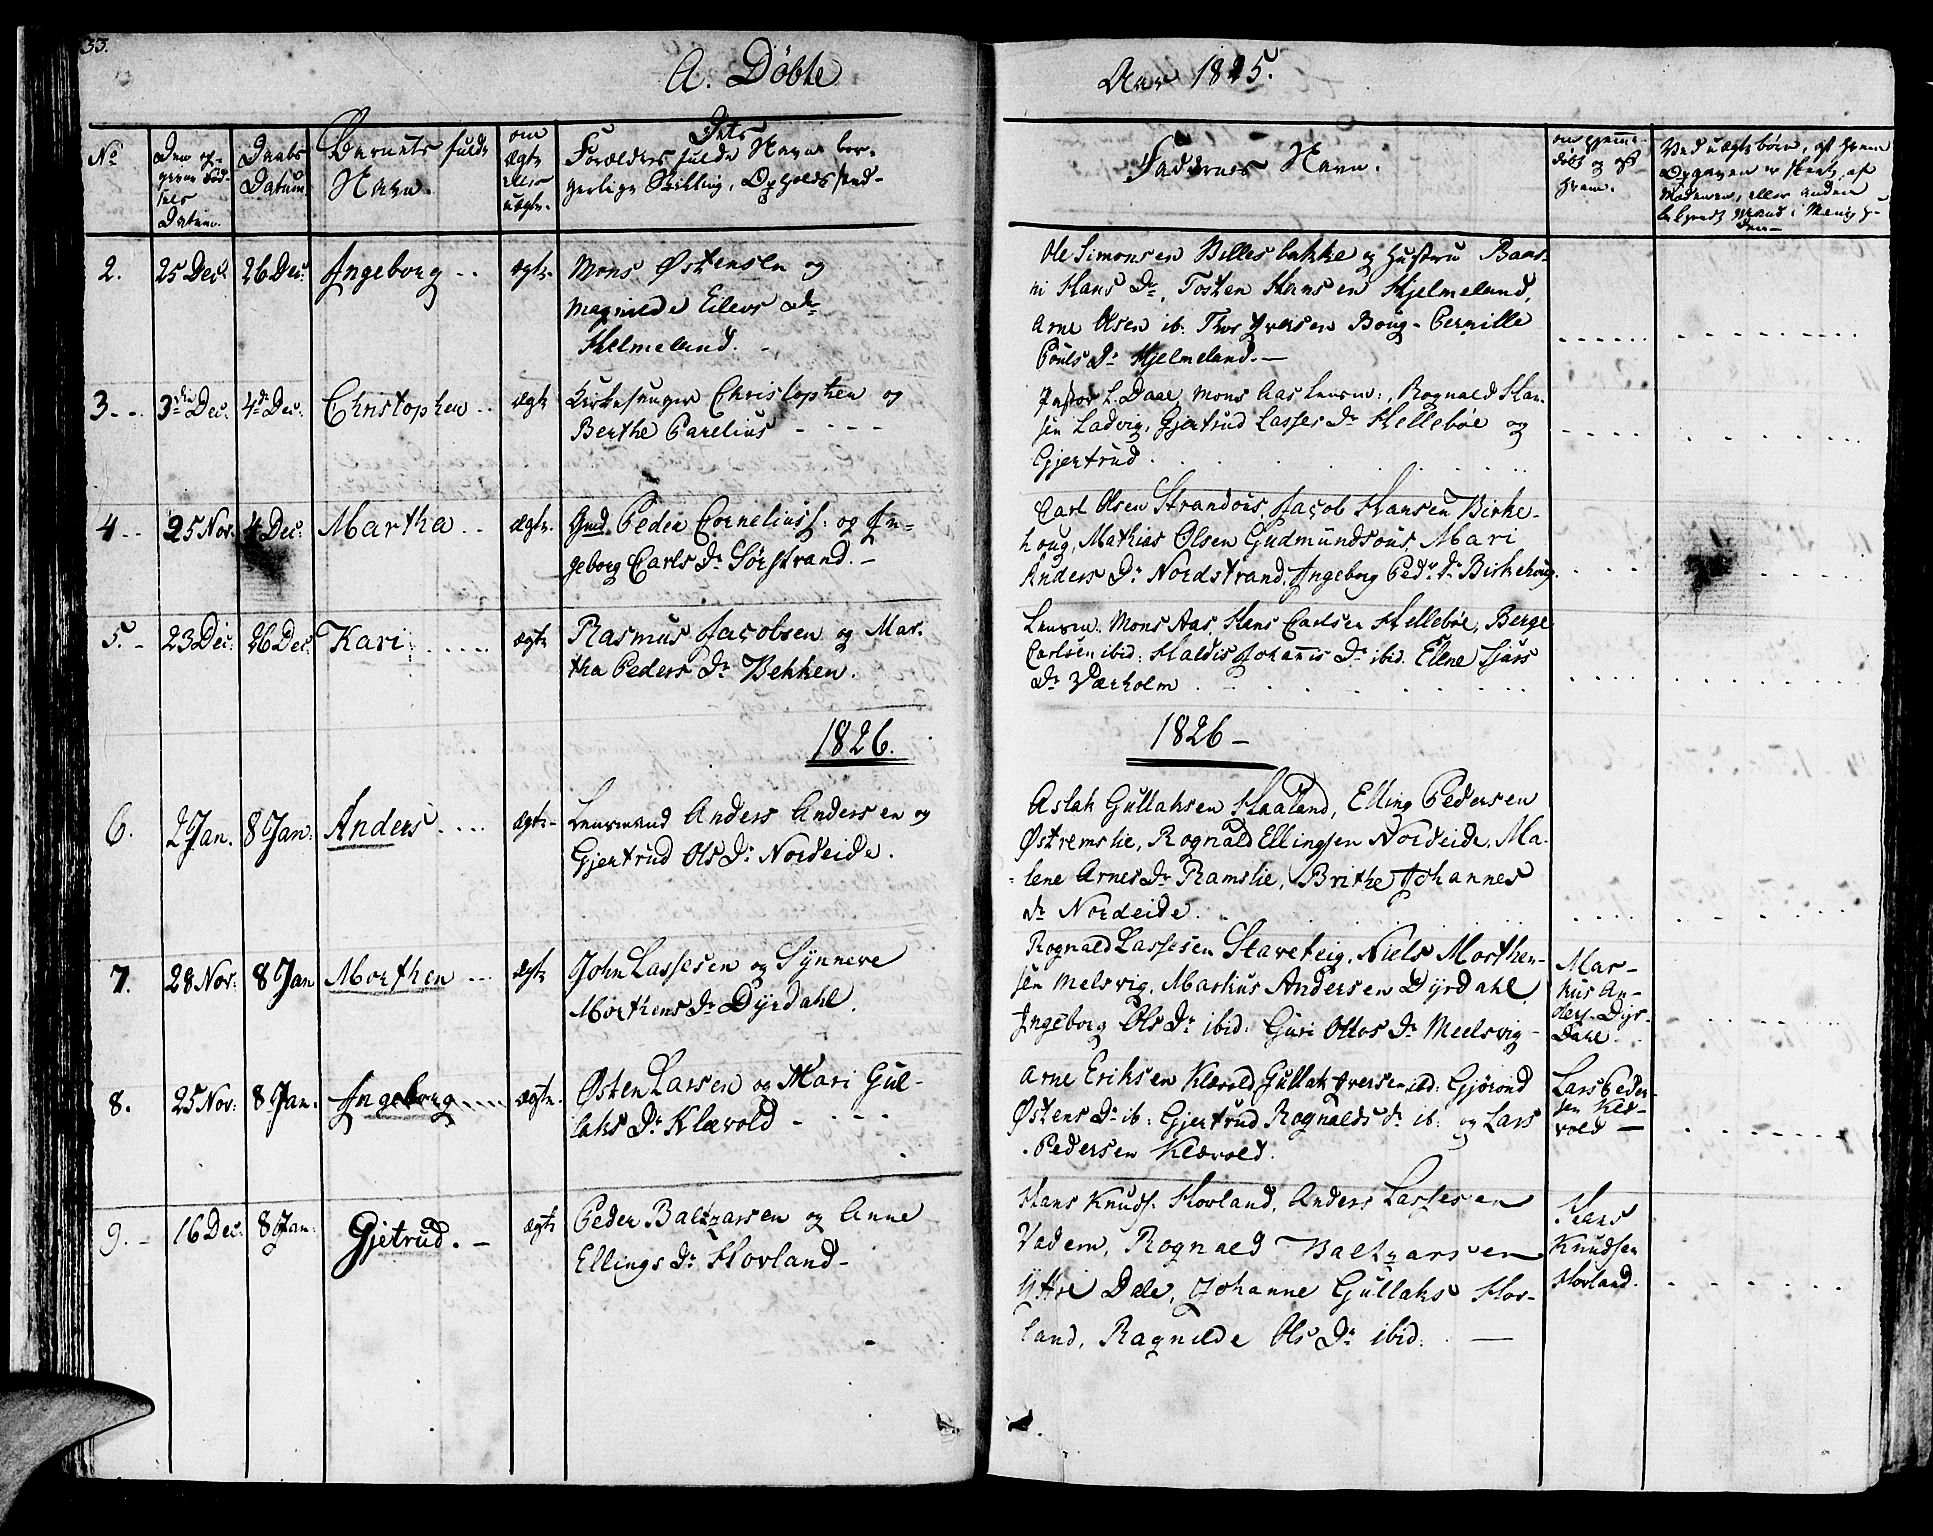 33.
A. Döbte
Aar 1825.
No
Den op-
givne Fød-
sels
Datum.
Daabs
Datum
Barnets fulde
Navn.
om
ægte
eller
uægte.
Dets
Forældres fulde Navn, bor-
gerlige Stilling, Opholdssted-
Faddernes Navn.
om hjemme-
døbt og af
hvem.
Ved uægte børn, af hvem
Opgaven er skeet, af
Moderen, eller anden
bekjendt Mand i Menighe-
den-
2.
25 Dec.
26 Dec:
Ingeborg - -
ægte-
Mons Østensen og
Magnilde Eilers Dr
Hielmeland. -
Ole Simonsen Billesbakke og Hustru Baar-
ni Hans Dr, Tosten Hansen Hjelmeland,
Arne Olsen ib: Thor Iversen Boug- Pernille
Pouls Dr Hjelmeland.-
3- -
3die Dec.
4de Dec:
Christopher - -
ægte
Kirkesanger Christopher og
Berthe Parelius - - - -
Pastor L. Daae, Mons Aas Lensm:, Rognald Han-
sen Ladvig, Gjertrud Lasses Dr Hellebøe og
Gjertrud.
4- -
25 Nov.
4 Dec:
Martha - -
ægte-
Gmd. Peder Corneliuss: og In-
geborg Carls Dr Sörstrand.-
Carl Olsen Strandous, Jacob Hansen Birke-
houg, Mathias Olsen Gudmundsous, Mari
Anders Dr Nordstrand, Ingeborg Peders Dr Birkehoug.
5. -
23 Dec:
26 Dec.
Kari . . . . .
ægte
Rasmus Jacobsen og Mar-
tha Peders Dr Bekken.
Lensm. Mons Aas, Hans Carlsen Hellebøe, Berge
Carlsen ibid: Haldis Johannis Dr ibid. Elene Sjurs
Dr Værholm
1826.
1826 -
6.
2 Jan.
8 Jan:
Anders - - - -
ægte-
Lensmand Anders Andersen og
Gjertrud Ols Dr Nordeide.
Aslak Gullaksen Haaland, Elling Pedersen
Østremslie, Rognald Ellingsen Nordeide, Ma-
lene Arnes Dr Ramslie, Brithe Johannes
Dr Nordeide.
7.
28 Nov:
8 Jan
Morthen - - -
ægte
John Lassesen og Synneve
Morthens Dr Dyrdahl.
Rognald Lassesen Staveteig, Niels Morthen-
sen Melsvig, Markus Andersen Dyrdahl
Ingeborg Ols Dr ibid: Guri Ottos Dr Meelsvig-
Mar-
kus An-
ders. Dyr-
dahl.
8.
25 Nov:
8 Jan.
Ingeborg . . . . .
ægte.
Østen Larsen og Mari Gul-
laks Dr Klævold - - - -
Arne Eriksen Klævold, Gullak Iversen ibd: Gjørond
Østens Dr ib: Gjertrud Rognalds Dr ib: og Lars
Pedersen Klævold.
Lars Peder-
sen Klæ-
vold -
9. -
16 Dec.
8 Jan:
Gjetrud. -
ægte
Peder Baltzarsen og Anne
Ellings Dr Hovland-
Hans Knuds. Hovland, Anders Lassesen
Vadem, Rognald Baltzarsen
Yttre Dale, Johanne Gullaks Hov-
land, Ragnilde Ols Dr ibid: -
Hans
Knudsen
Hovland.